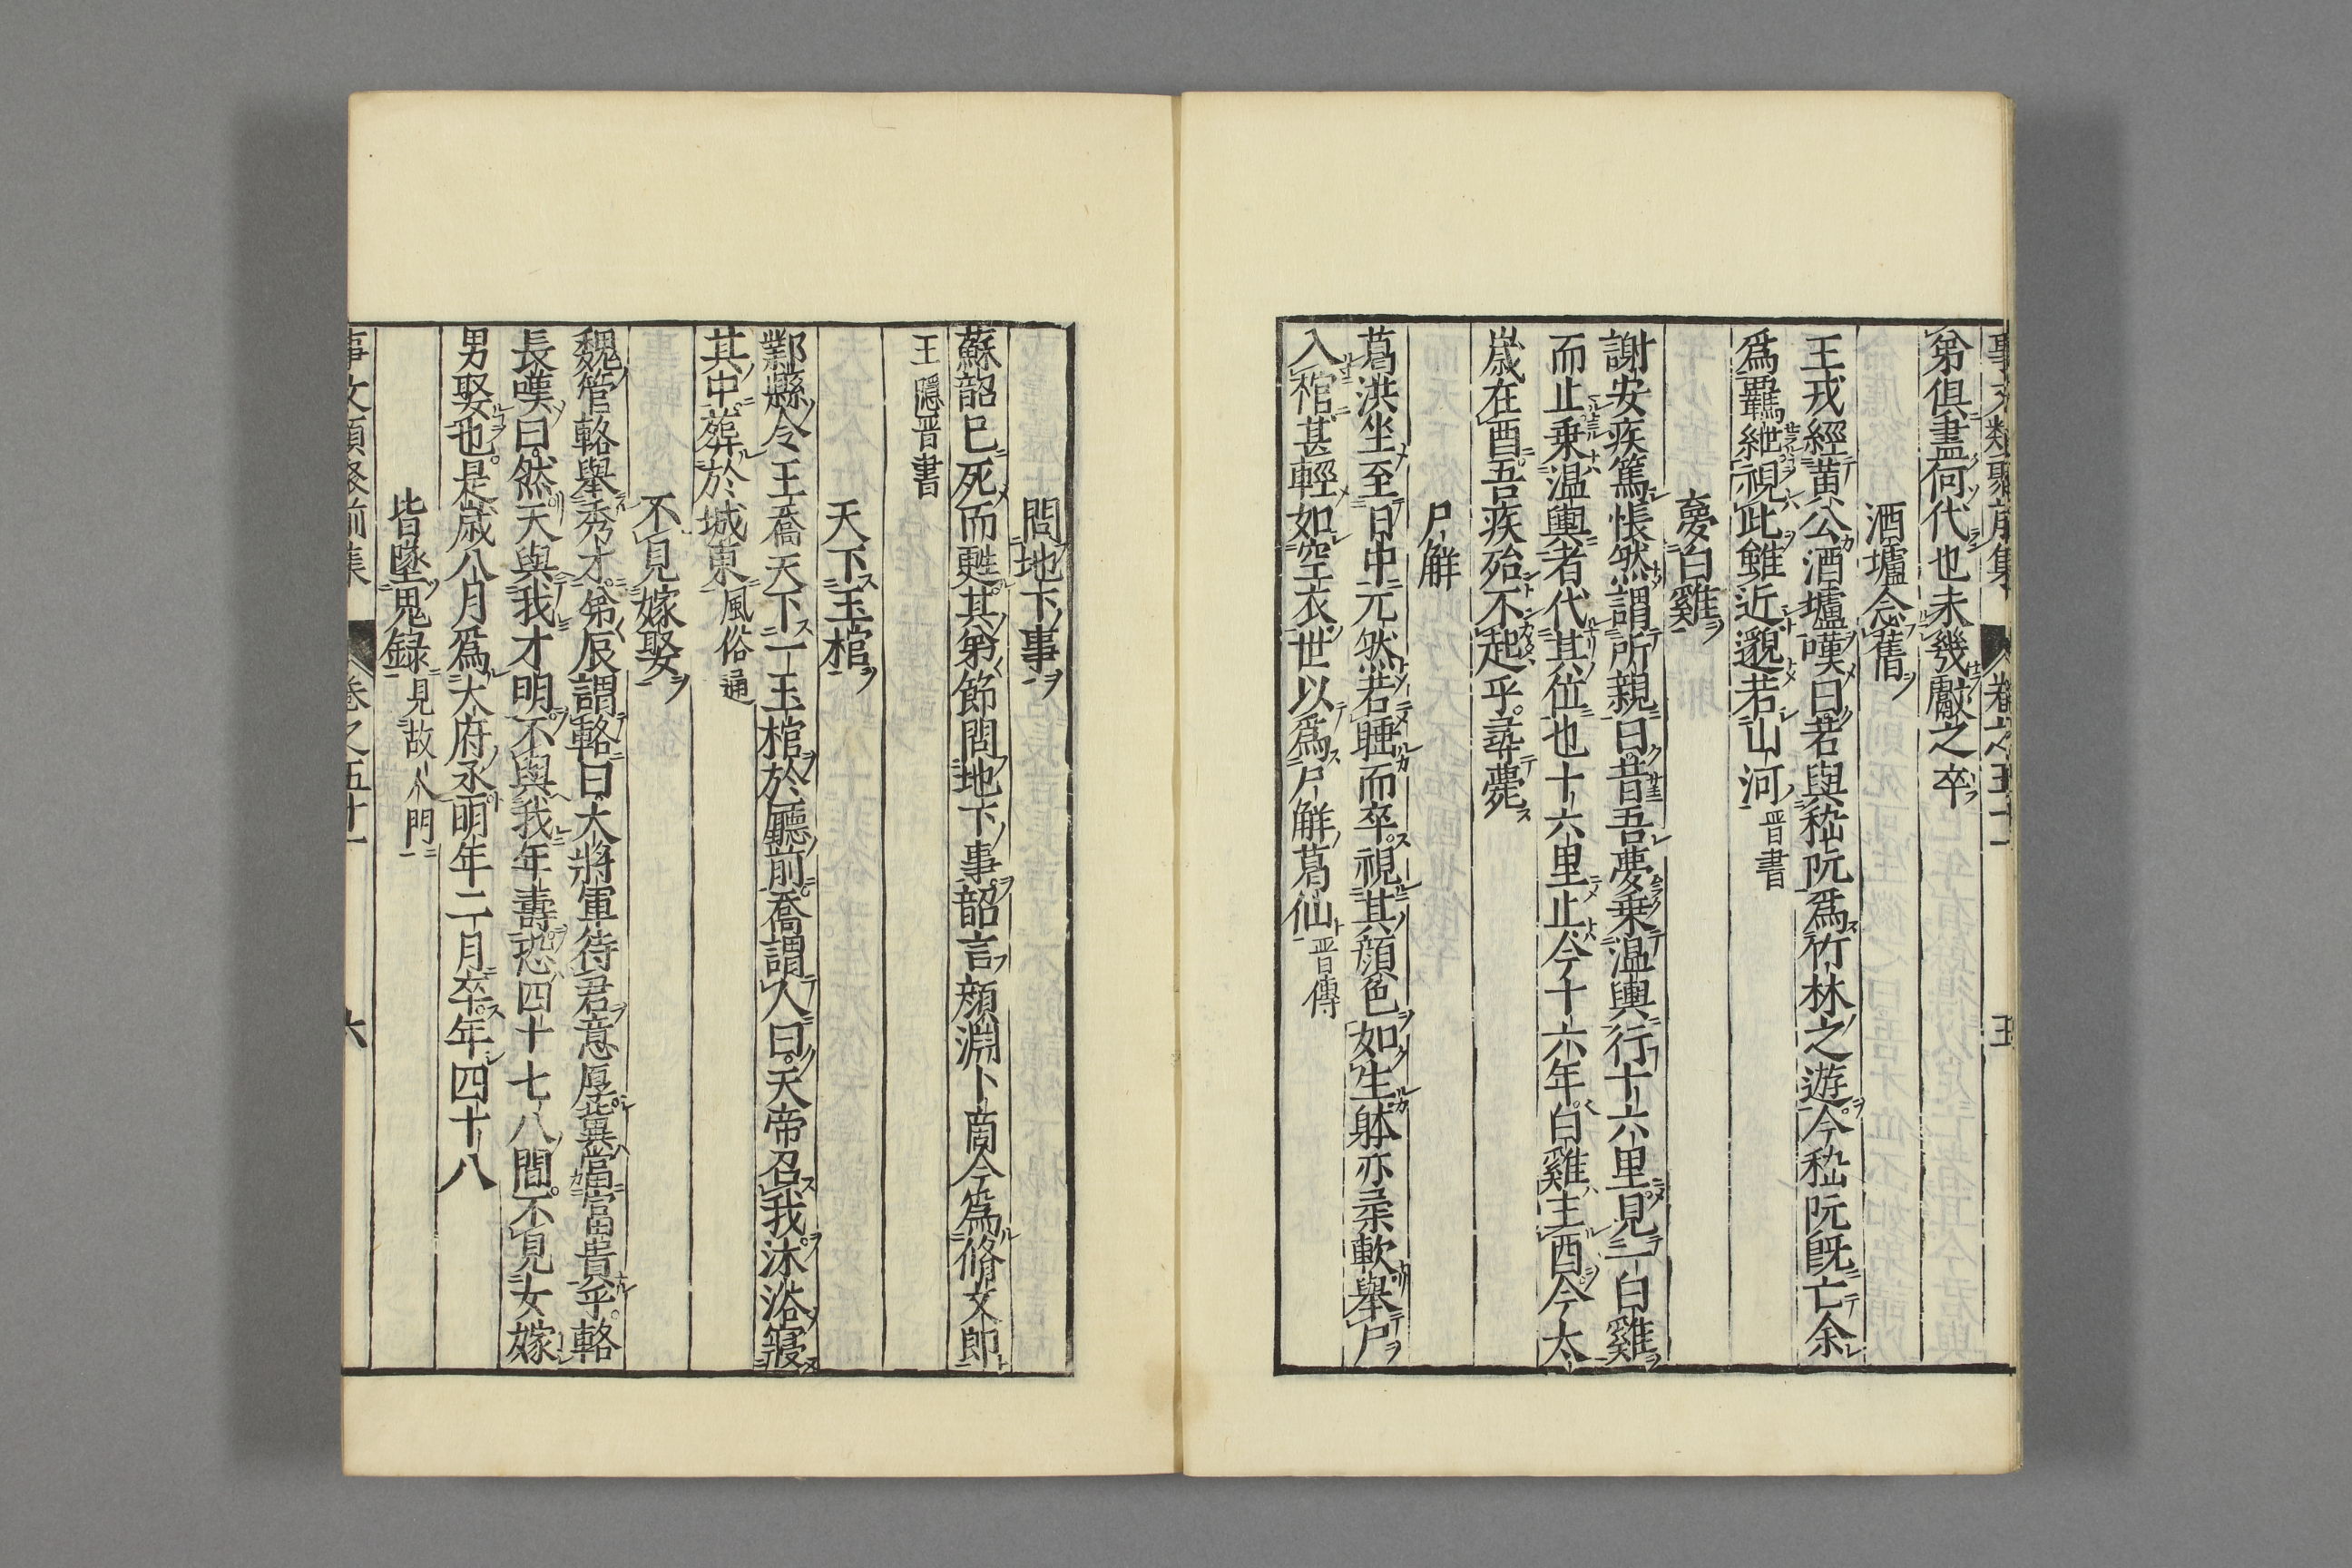 事文類聚前集 卷之五十一 五
弟俱盡何代也未幾獻之卒
酒壚念舊
王戎經黃公酒壚嘆曰若與嵇阮爲竹林之遊今嵇阮旣亡余
爲羈紲視此雖近邈若山河晋書
夣白雞
謝安疾篤悵然謂所親曰昔吾夢乗温輿行十六里見一白雞
而止乗温輿者代其位也十六里止今十六年白雞主酉今太
歲在酉吾疾殆不起乎尋薨
尸解
葛洪坐至日中兀然若睡而卒視其顏色如生躰亦柔軟舉尸
入棺甚輕如空衣世以爲尸解葛仙晋傳
問地下事
蘇韶已死而甦其弟節問地下事韶言顏淵卜商今爲脩文郎
王隱晋書
天下玉棺
鄴縣令王喬天下一玉棺於廳前喬謂人曰天帝召我沐浴寢
其中葬於城東風俗通
不見嫁娶
魏管輅舉秀才弟辰謂輅曰大將軍待君意厚冀當富貴乎輅
長嘆曰然天與我才明不與我年壽恐四十七八間不見女嫁
男娶也是歲八月爲大府丞明年二月卒年四十八
皆墜鬼録見故人門
事文類聚前集 卷之五十一 六